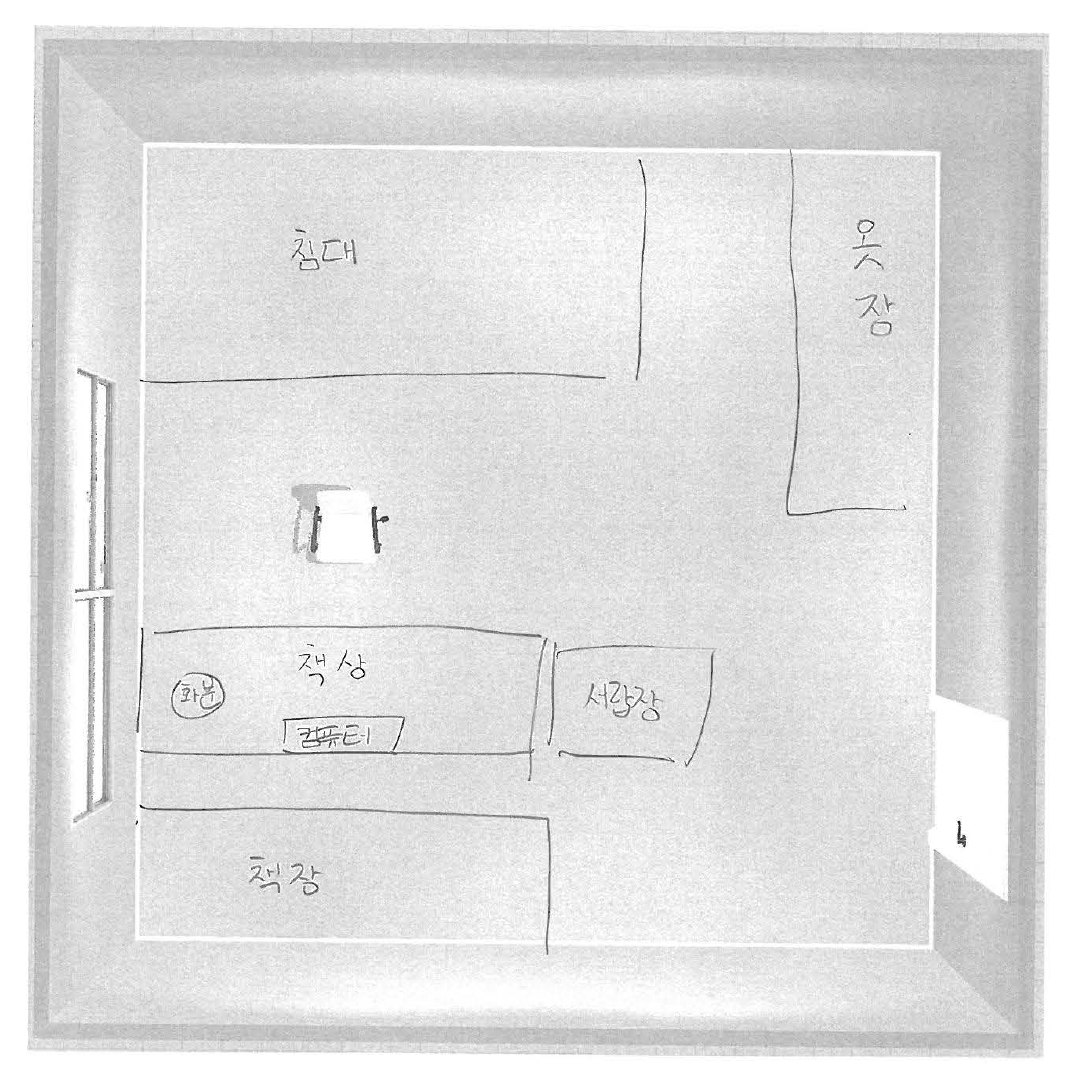 침대
옷
장
책상
화분
컴퓨터
서랍장
책장